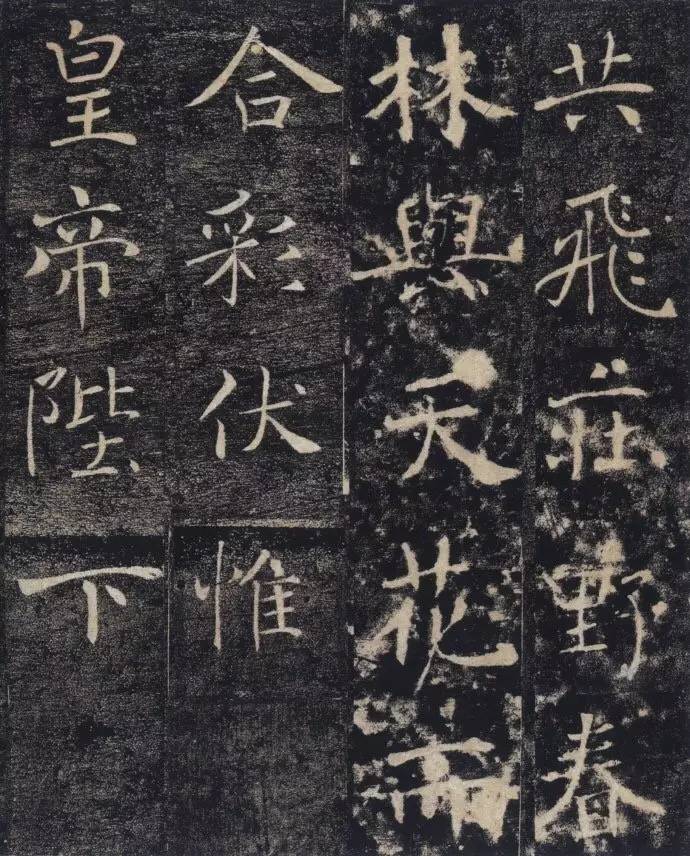 共飛莊野春
林與天花而
合彩伏惟
皇帝陛下